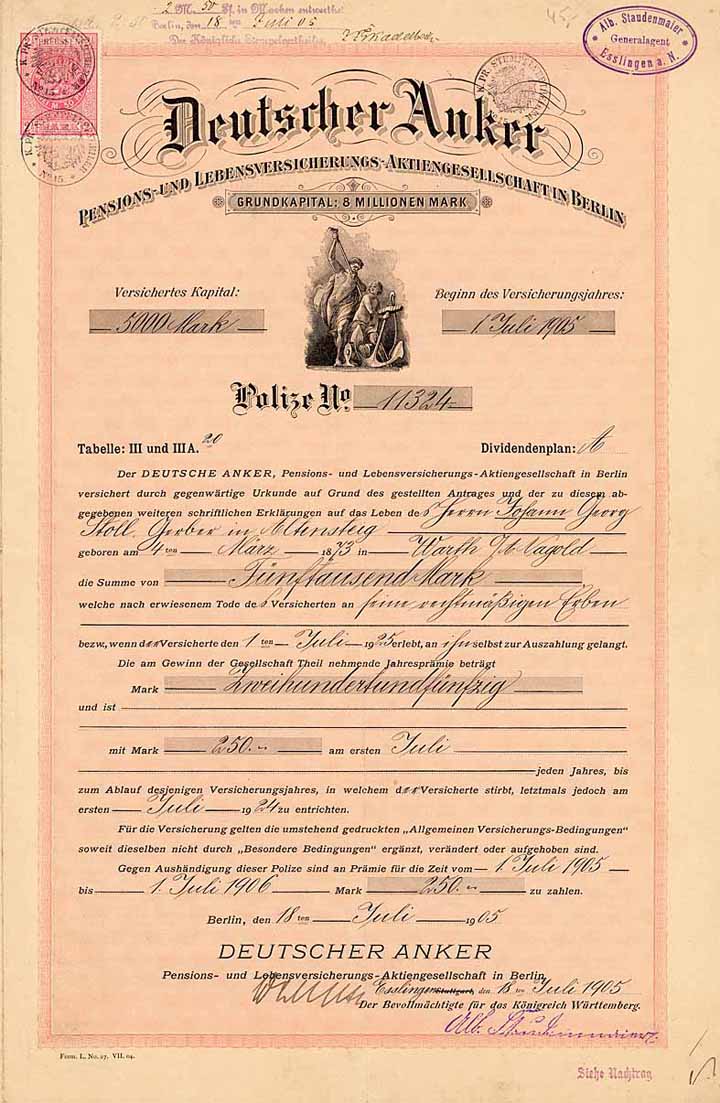 2 M. 50 Pf. in Marken entwerthet
Berlin, den 18 ten Juli 05
Der Königliche Stempelvertheiler.
45,-
Alb. Staudenmaier
Generalagent
Esslingen a. N.
PREUSSEN
No 15.
Deutscher Anker
PENSIONS- UND LEBENSVERSICHERUNGS-AKTIENGESELLSCHAFT IN BERLIN
GRUNDKAPITAL: 8 MILLIONEN MARK
Versichertes Kapital:
Beginn des Versicherungsjahres:
5000 Mark
1. Juli 1905
Polize No. 11324
Tabelle: III und III A. 20
Dividendenplan: A
Der DEUTSCHE ANKER, Pensions- und Lebensversicherungs-Aktiengesellschaft in Berlin
versichert durch gegenwärtige Urkunde auf Grund des gestellten Antrages und der zu diesem ab-
gegebenen weiteren schriftlichen Erklärungen auf das Leben des Herrn Johann Georg
Stoll, Gerber in Altensteig
geboren am 4 ten März 1873 in Warth /A. Nagold
die Summe von Fünftausend Mark
welche nach erwiesenem Tode des Versicherten an seine rechtmäßigen Erben
bezw., wenn der Versicherte den 1 ten Juli 1925 erlebt, an ihn selbst zur Auszahlung gelangt.
Die am Gewinn der Gesellschaft Theil nehmende Jahresprämie beträgt
Mark Zweihundertundfünfzig
und ist
mit Mark 250.- am ersten Juli
jeden Jahres, bis
zum Ablauf desjenigen Versicherungsjahres, in welchem der Versicherte stirbt, letztmals jedoch am
ersten Juli 1924 zu entrichten.
Für die Versicherung gelten die umstehend gedruckten „Allgemeinen Versicherungs-Bedingungen“
soweit dieselben nicht durch „Besondere Bedingungen“ ergänzt, verändert oder aufgehoben sind.
Gegen Aushändigung dieser Polize sind an Prämie für die Zeit vom 1. Juli 1905
bis 1. Juli 1906 Mark 250.- zu zahlen.
Berlin, den 18 ten Juli 1905
DEUTSCHER ANKER
Pensions- und Lebensversicherungs-Aktiengesellschaft in Berlin.
Esslingen Stuttgart, den 18 ten Juli 1905
Der Bevollmächtigte für das Königreich Württemberg.
Alb. Staudenmaier
Form. L. No. 27. VII. 04.
Siehe Nachtrag